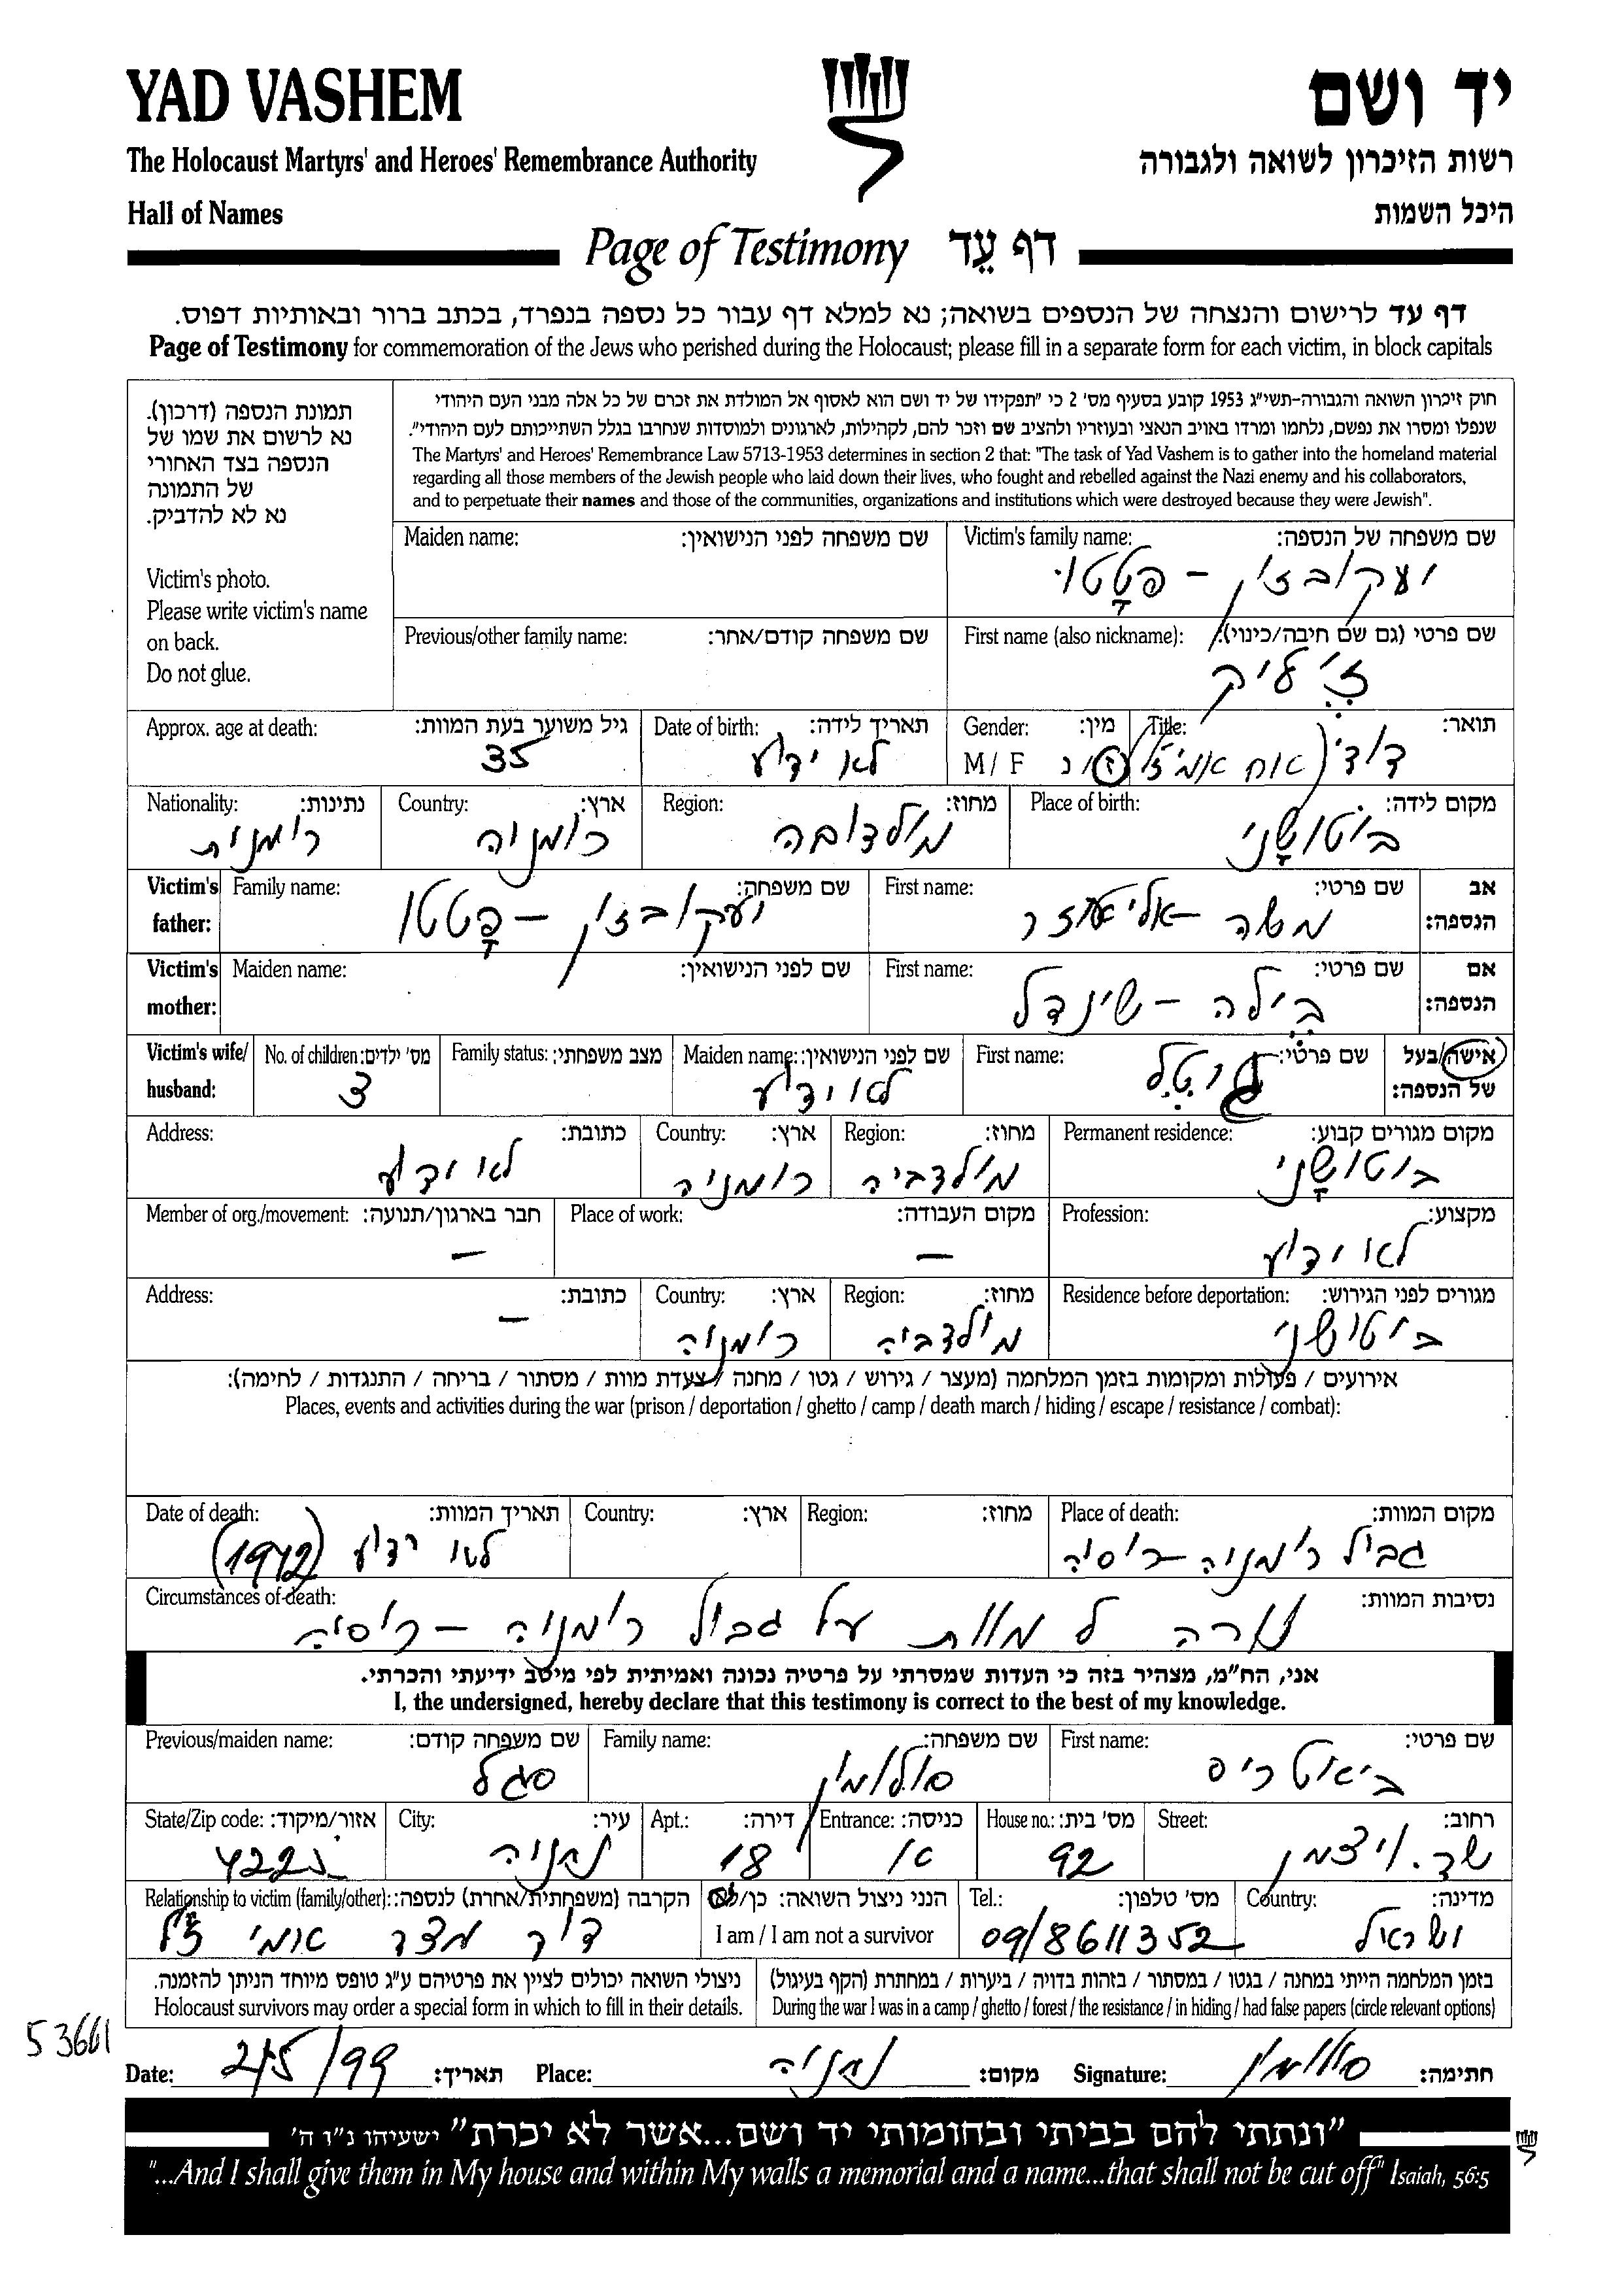 YAD VASHEM
יד ושם
The Holocaust Martyrs' and Heroes' Remembrance Authority
רשות הזיכרון לשואה ולגבורה
Hall of Names
היכל השמות
Page of Testimony דף עֵד
דף עד לרישום והנצחה של הנספים בשואה; נא למלא דף עבור כל נספה בנפרד, בכתב ברור ובאותיות דפוס.
Page of Testimony for commemoration of the Jews who perished during the Holocaust; please fill in a separate form for each victim, in block capitals
חוק זיכרון השואה והגבורה-תשי"ג 1953 קובע בסעיף מס' 2 כי "תפקידו של יד ושם הוא לאסוף אל המולדת את זכרם של כל אלה מבני העם היהודי
שנפלו ומסרו את נפשם, נלחמו ומרדו באויב הנאצי ובעוזריו ולהציב שם וזכר להם, לקהילות, לארגונים ולמוסדות שנחרבו בגלל השתייכותם לעם היהודי".
The Martyrs' and Heroes' Remembrance Law 5713-1953 determines in section 2 that: "The task of Yad Vashem is to gather into the homeland material
regarding all those members of the Jewish people who laid down their lives, who fought and rebelled against the Nazi enemy and his collaborators,
and to perpetuate their names and those of the communities, organizations and institutions which were destroyed because they were Jewish".
תמונת הנספה (דרכון).
נא לרשום את שמו של
הנספה בצד האחורי
של התמונה
נא לא להדביק.
Victim's photo.
Please write victim's name
on back.
Do not glue.
Victim's family name: שם משפחה של הנספה:
יעקובזון - פָטטו
Maiden name: שם משפחה לפני הנישואין:
First name (also nickname): שם פרטי (גם שם חיבה/כינוי):
ז'עליק
Previous/other family name: שם משפחה קודם/אחר:
Title: תואר:
דוד (אח אמי ז"ל)
Gender: מין:
M / F ז / נ
Date of birth: תאריך לידה:
לא ידוע
Approx. age at death: גיל משוער בעת המוות:
35
Place of birth: מקום לידה:
בוטושָני
Region: מחוז:
מולדובה
Country: ארץ:
רומניה
Nationality: נתינות:
רומנית
Victim's father: אב הנספה:
First name: שם פרטי:
משה - אליעזר
Family name: שם משפחה:
יעקובזון - פָטטו
Victim's mother: אם הנספה:
First name: שם פרטי:
ביילה - שיינדל
Maiden name: שם לפני הנישואין:
Victim's wife/ husband: אישה/בעל של הנספה:
First name: שם פרטי:
גיטל
Maiden name: שם לפני הנישואין:
לא ידוע
Family status: מצב משפחתי:
No. of children: מס' ילדים:
3
Permanent residence: מקום מגורים קבוע:
בוטושָני
Region: מחוז:
מולדביה
Country: ארץ:
רומניה
Address: כתובת:
לא ידוע
Profession: מקצוע:
לא ידוע
Place of work: מקום העבודה:
—
Member of org./movement: חבר בארגון/תנועה:
—
Residence before deportation: מגורים לפני הגירוש:
בוטושני
Region: מחוז:
מולדביה
Country: ארץ:
רומניה
Address: כתובת:
—
אירועים / פעולות ומקומות בזמן המלחמה (מעצר / גירוש / גטו / מחנה / צעדת מוות / מסתור / בריחה / התנגדות / לחימה):
Places, events and activities during the war (prison / deportation / ghetto / camp / death march / hiding / escape / resistance / combat):
Place of death: מקום המוות:
גבול רומניה - רוסיה
Region: מחוז:
Country: ארץ:
Date of death: תאריך המוות:
לא ידוע (1942)
Circumstances of death: נסיבות המוות:
נורה למוות על גבול רומניה - רוסיה
אני, הח"מ, מצהיר בזה כי העדות שמסרתי על פרטיה נכונה ואמיתית לפי מיטב ידיעתי והכרתי.
I, the undersigned, hereby declare that this testimony is correct to the best of my knowledge.
First name: שם פרטי:
ביאטריס
Family name: שם משפחה:
סולומון
Previous/maiden name: שם משפחה קודם:
סגל
Street: רחוב:
שד. ויצמן
House no.: מס' בית:
92
Entrance: כניסה:
א
Apt.: דירה:
18
City: עיר:
נתניה
State/Zip code: אזור/מיקוד:
Country: מדינה:
ישראל
Tel.: מס' טלפון:
09/8611352
הנני ניצול השואה: כן/לא
I am / I am not a survivor
Relationship to victim (family/other): הקרבה (משפחתית/אחרת) לנספה:
דוד מצד אמי ז"ל
בזמן המלחמה הייתי במחנה / בגטו / במסתור / בזהות בדויה / ביערות / במחתרת (הקף בעיגול)
During the war I was in a camp / ghetto / forest / the resistance / in hiding / had false papers (circle relevant options)
ניצולי השואה יכולים לציין את פרטיהם ע"ג טופס מיוחד הניתן להזמנה.
Holocaust survivors may order a special form in which to fill in their details.
53661
Date: 2/5/99 תאריך: Place: נתניה מקום: Signature: סולומון חתימה:
"ונתתי להם בביתי ובחומותי יד ושם...אשר לא יכרת" ישעיהו נ"ו ה'
"...And I shall give them in My house and within My walls a memorial and a name...that shall not be cut off" Isaiah, 56:5